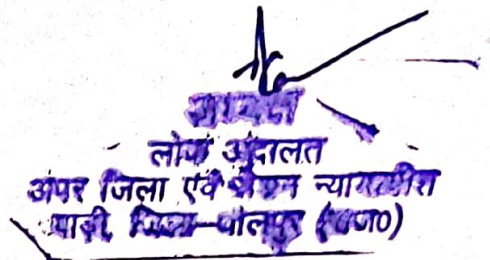 लोक अदालत
अपर जिला एवं सेशन न्यायाधीश
बाड़ी, जिला-धौलपुर (राज0)